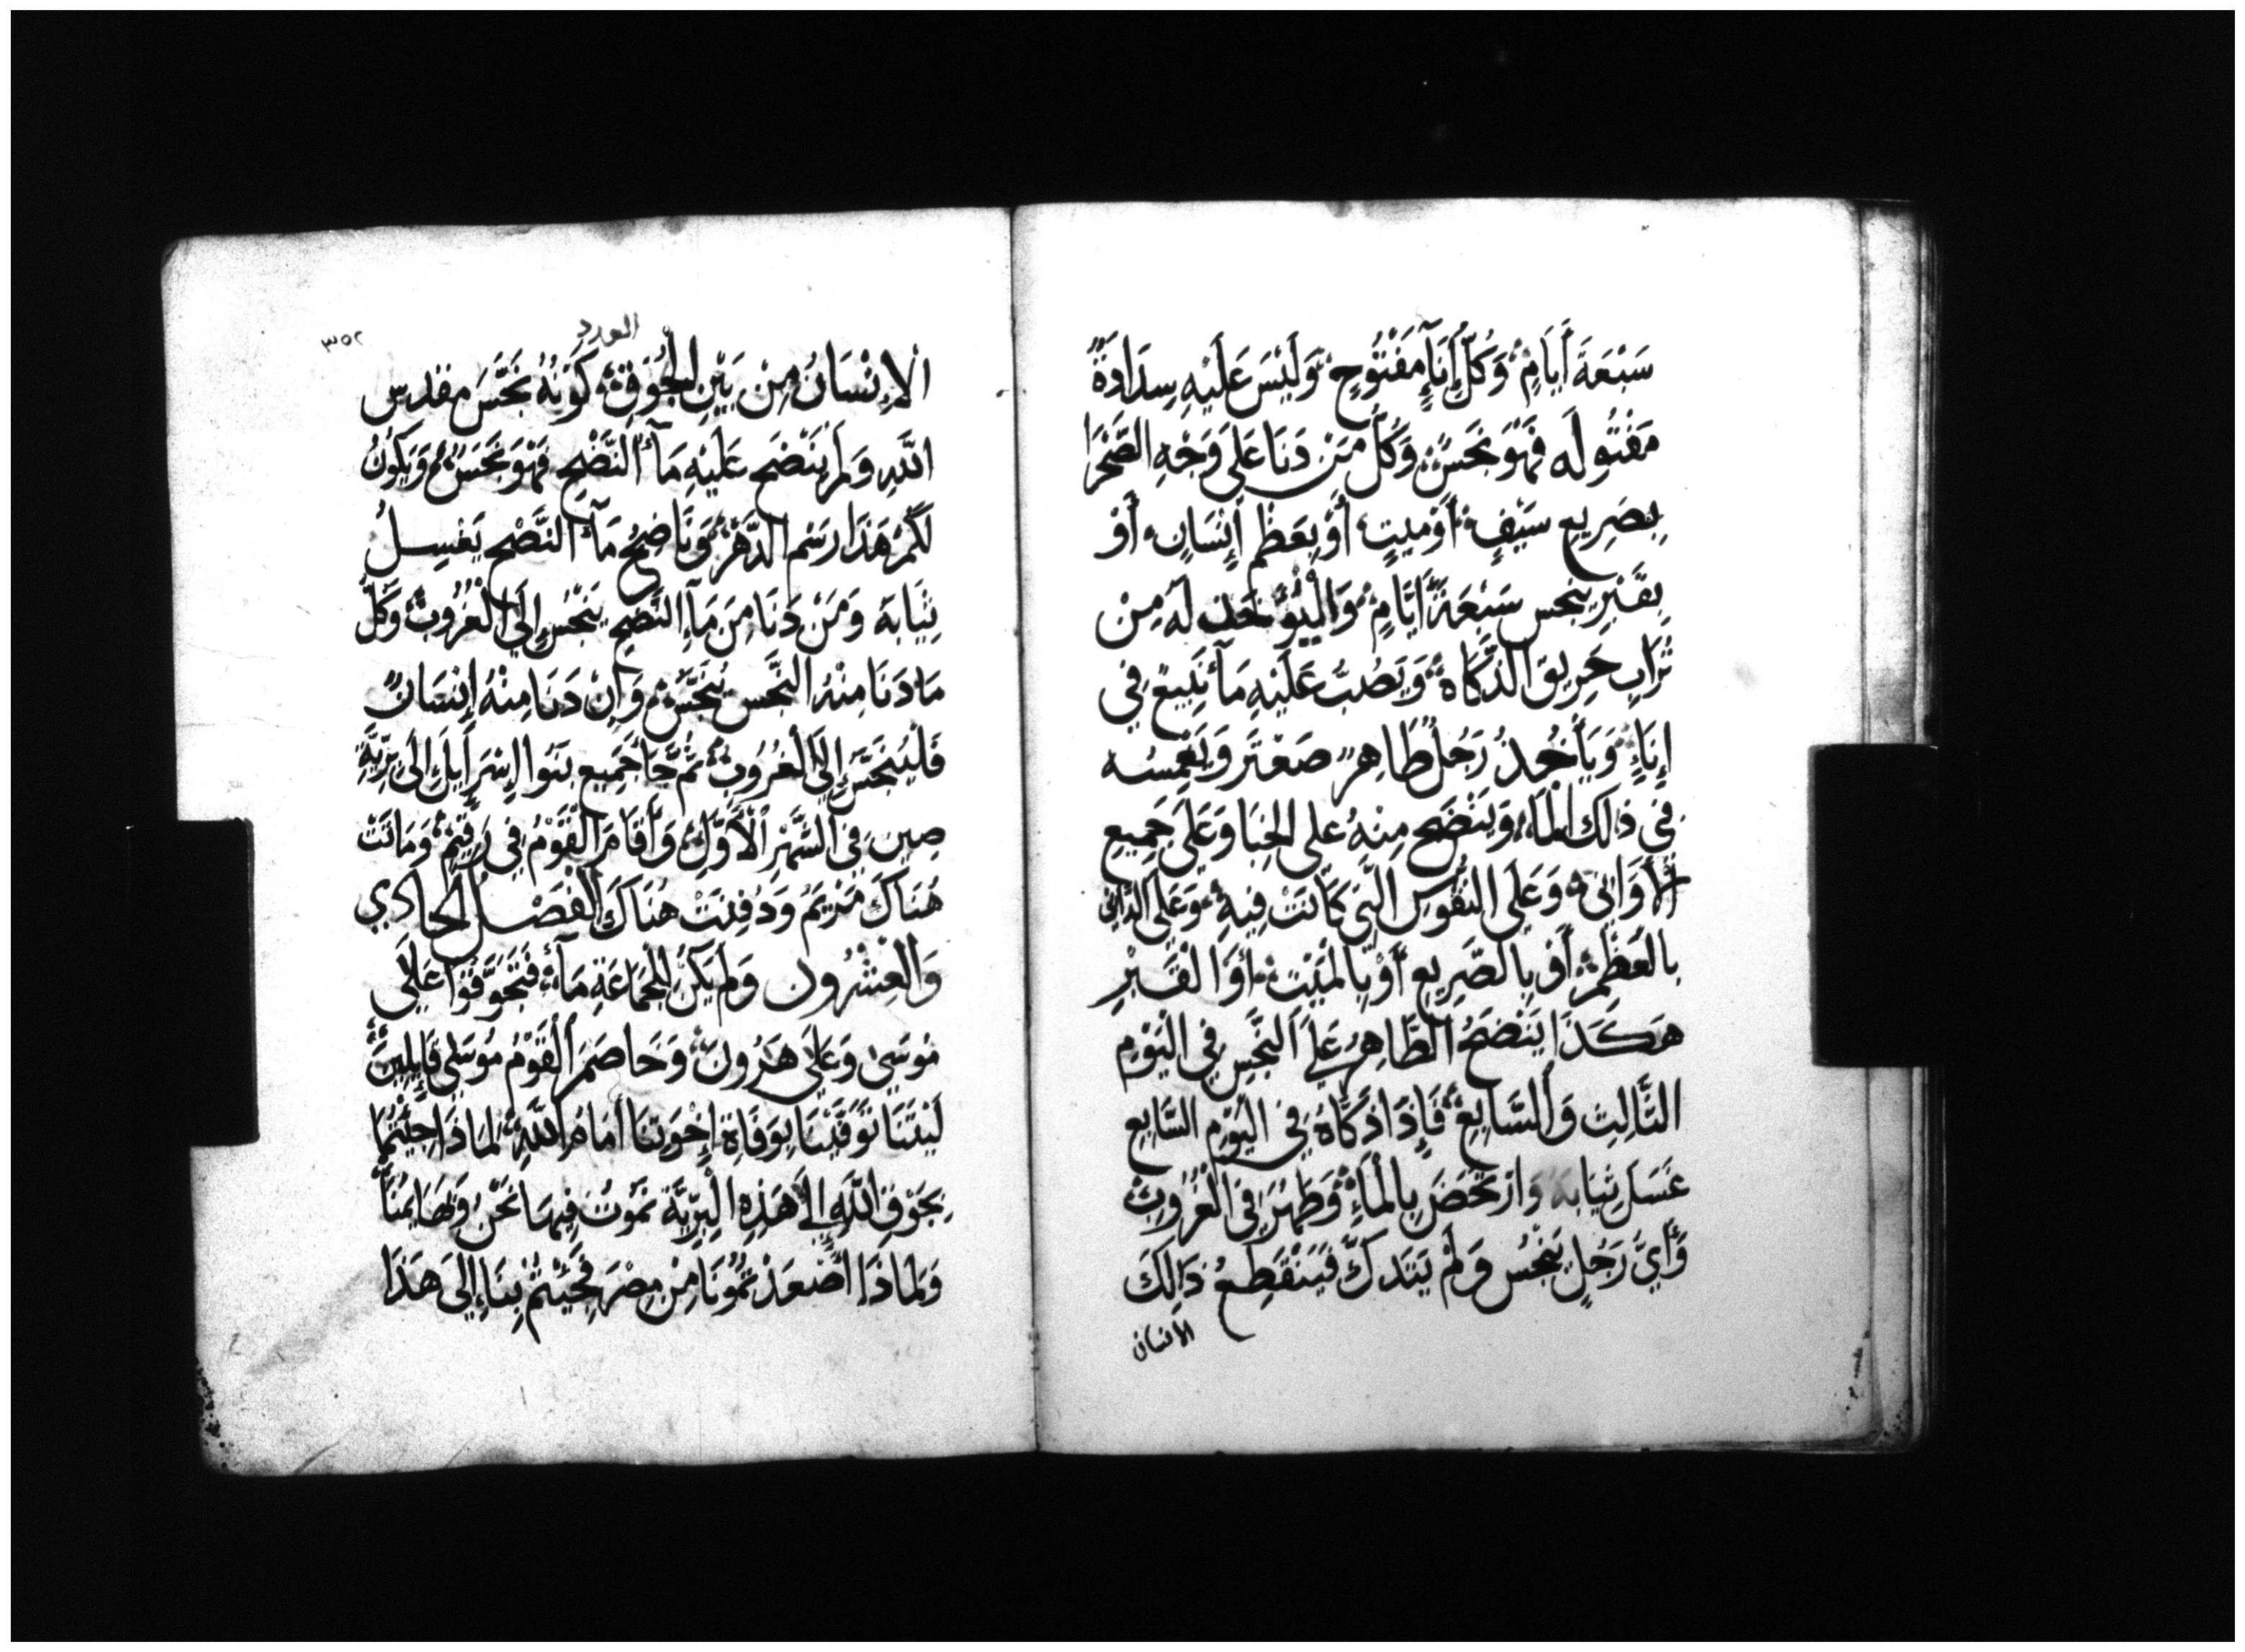 سَبْعَةَ أَيَامٍ وَكُلُّ إِنَآءٍ مَفْتُوحٍ وَلَيْسَ عَلَيْهِ سِدَادَةٌ
مَفْتُولَه فَهْوَ نَجَسٌ وَكُلُّ مَنْ دَنَا عَلَى وَجْهِ الصَّحْرَا
بِصَرِيعِ سَيْفٍ أَوْ مَيِتٍ أَوْ بِعَظْمِ إِنْسَانٍ أَوْ
بِقَبْرٍ يَنْجس سَبْعَةَ أَيَّامٍ وَلْيُؤْخَذ لَه مِنْ
تُرَابِ حَرِيقِ الذَّكَاة وَيَصُبُّ عَلَيْهِ مَآء يَنْبِيع فِي
إِنَاءٍ وَيَأْخُذُ رَجُلٌ طَاهِرٌ صَعْتَر وَيَغْمِسُه
فِي ذَلِكَ الْمَاء وَيَنْضَح مِنْهُ عَلى الخِبَا وَعَلَى جَمِيعِ
الْأَوَانِي وَعَلَى النُفُوسِ الَّتِي كَانَتْ فِيهِ وَعَلَى الدَّانِي
بِالعَظْمِ أَوْ بِالصَّرِيعِ أَوْ بِالمَيْت أَوْ الْقَبْرِ
هَكَذَا يَنْضَحُ الطَّاهِرُ عَلَى النَّجَسِ فِي الْيَوْمِ
الثَّالِثِ وَالسَّابِعِ فَإِذَا ذَكَّاهُ فِي اليَوْمِ السَّابِعِ
غَسَلَ ثِيَابَهُ وَارْتَحَضَ بِالمَاءِ وَطَهُرَ فِي الْغُرُوبِ
وَأَيُّ رَجُلٍ يَنْجُس وَلَمْ يَتَذَكَّ فَيَنْقَطِعُ ذَالِكَ
الانسان
العدد
٣٥٢
الْإِنْسَانُ مِنْ بَيْنِ الجُوْقِ كَوْنُهُ نَجَّسَ مقْدِس
اللَّهِ وَلَمْ يَنْضَح عَلَيْهِ مَآءُ النَّضْحِ فَهْوَ نَجَسٌ وَيَكُونُ
لَكُمْ هَذَا رَسْم الدَّهْرِ وَنَاضِحُ مَآء النَّضْحِ يَغْسِلُ
ثِيَابَهُ وَمَنْ دَنَا مِنَ مَآءِ النَّضْحِ يَنْجُس إِلَى الْغُرُوبِ وَكُلُّ
مَا دَنَا مِنْهُ النَّجَس يُنَجَّسُ وَإِنْ دَنَا مِنْهُ إِنْسَانٌ
فَلْيَنْجَس إِلَى الْغُرُوبِ ثُمَّ جَا جَمِيع بَنُوا إِسْرَايِلَ إِلَى بَرِّيَّةِ
صِين فِي الشَّهْرِ الْأَوَّلِ وَأَقَامَ الْقَوْمُ فِي رَقِيْم وَمَاتَتْ
هُنَاكَ مَرْيَمُ وَدُفِنَتْ هُنَاكَ الْفَصْلُ الحادي
وَالعِشْرُون وَلَمْ يَكُنْ لِلْجَمَاعَةِ مَآء فَتَجَوَّقُوا عَلَى
مُوسَى وَعَلَى هَرُونَ وَخَاصَمَ الْقَوْمُ مُوسَى قَايِلِينَ
لَيْتَنَا تَوَفَّيْنَا بِوَفَاةِ إِخْوَتِنَا أَمَامَ اللَّهِ لِمَاذَا جِئْتُمَا
بِجَوْقِ اللَّهِ إِلَى هَذِهِ الْبَرِّيَّة نَمُوتُ فِيهَا نَحْنُ وَبَهَايِمُنَا
وَلِمَاذَا أَصْعَدْتُمُونَا مِنْ مِصْرَ فَجَيْتُمْ بِنَا إِلَى هَذَا